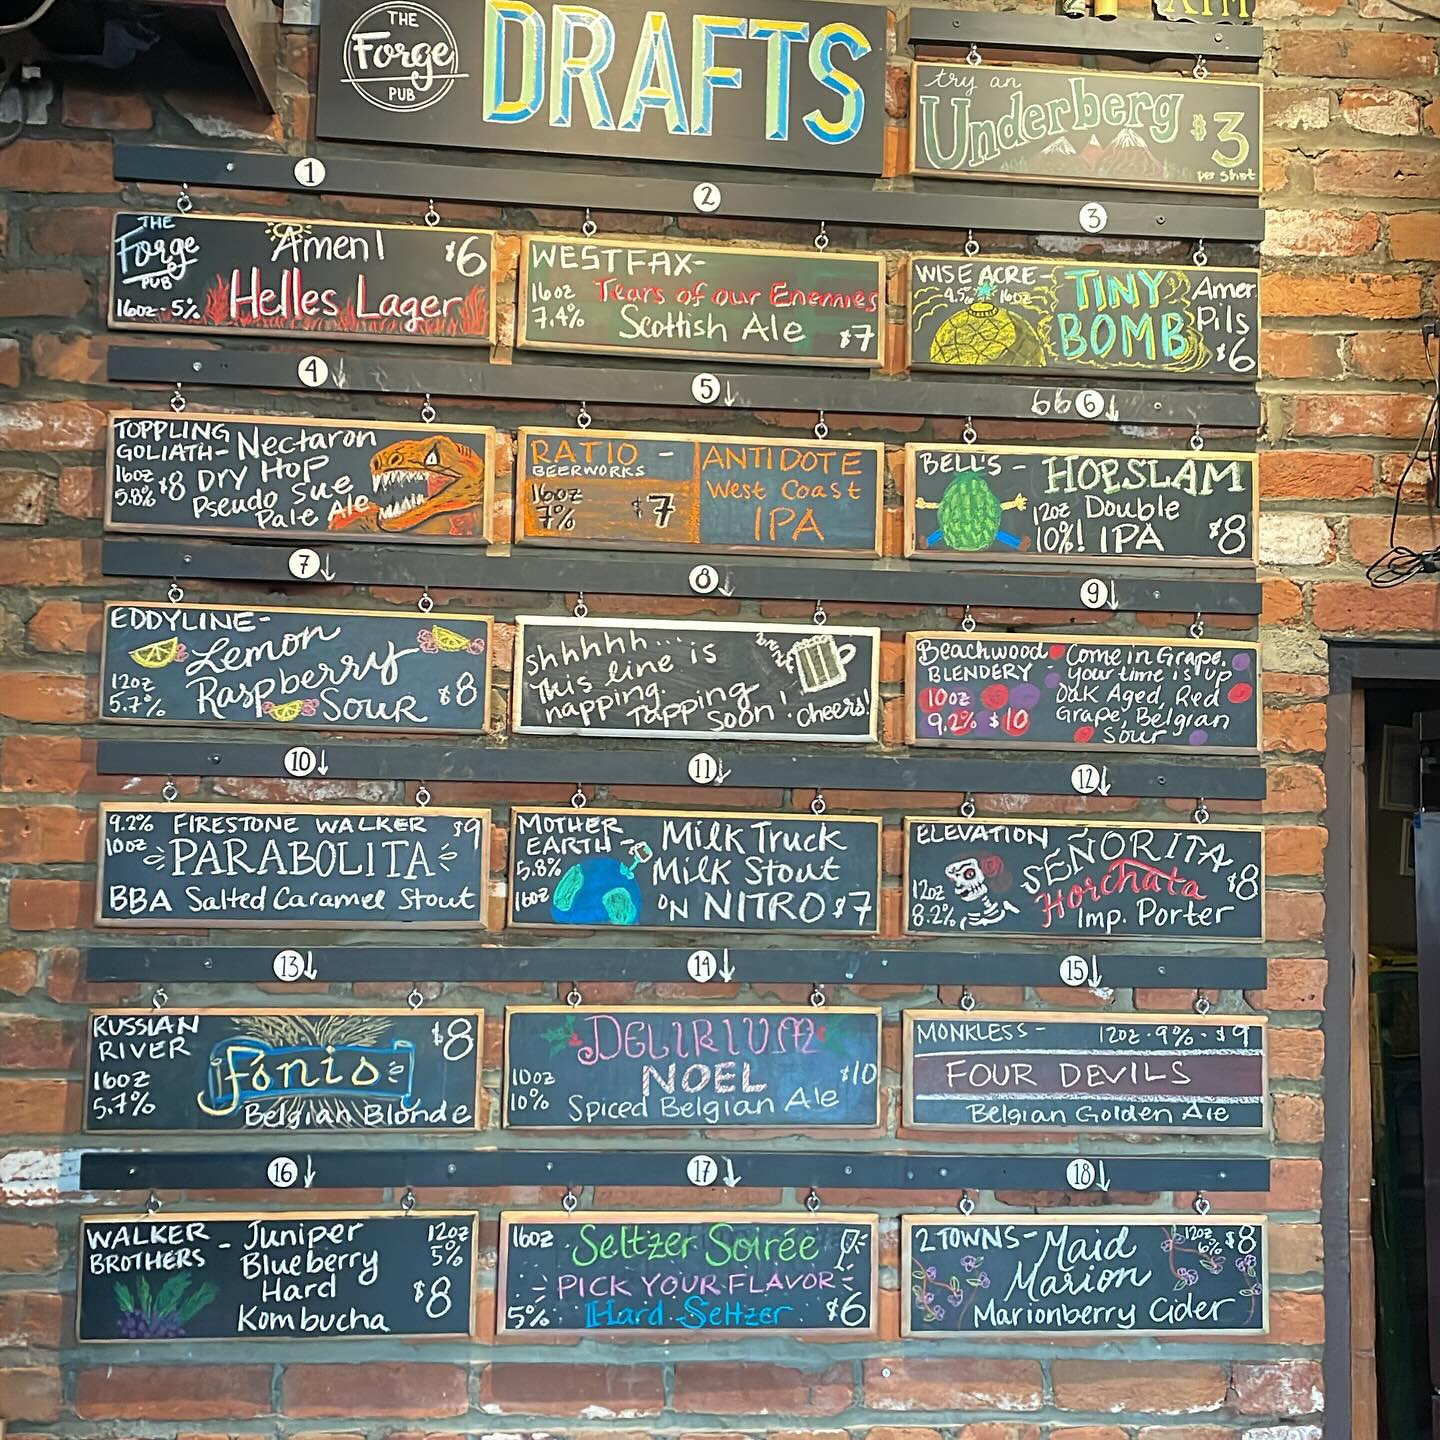 THE
Forge
PUB
DRAFTS
try an
Underberg
$3
per shot
1
THE
Forge
PUB
16oz - 5%
Amen!
Helles Lager
$6
2
WESTFAX-
16oz
7.4%
Tears of our Enemies
Scottish Ale
$7
3
WISEACRE-
4.5% 16oz
TINY
BOMB
Amer
Pils
$6
4
TOPPLING
GOLIATH- Nectaron
16oz
5.8%
$8
DRY HOP
Pseudo Sue
Pale Ale
5
RATIO -
BEERWORKS
16oz
7%
$7
ANTIDOTE
West Coast
IPA
66 6
BELL'S - HOPSLAM
12oz Double
10%! IPA
$8
7
EDDYLINE-
12oz
5.7%
Lemon
Raspberry
Sour
$8
8
shhhhh...
this line is
napping.
Tapping
soon! cheers!
9
Beachwood
BLENDERY
10oz
9.2% $10
Come in Grape.
Your time is up
Oak Aged, Red
Grape, Belgian
Sour
10
9.2%
10oz
FIRESTONE WALKER
$9
PARABOLITA
BBA Salted Caramel Stout
11
MOTHER
EARTH -
5.8%
16oz
Milk Truck
Milk Stout
ON NITRO $7
12
ELEVATION
12oz
8.2%
SEÑORITA
Horchata
Imp. Porter
$8
13
RUSSIAN
RIVER
16oz
5.7%
$8
Fonio
Belgian Blonde
14
DELIRIUM
NOEL
10oz
10%
$10
Spiced Belgian Ale
15
MONKLESS - 12oz · 9% - $9
FOUR DEVILS
Belgian Golden Ale
16
WALKER
BROTHERS -
Juniper
Blueberry
Hard
Kombucha
12oz
5%
$8
17
16oz
Seltzer Soirée
PICK YOUR FLAVOR
5%
Hard Seltzer
$6
18
2 TOWNS - Maid
Marion
Marionberry Cider
12oz
6%
$8